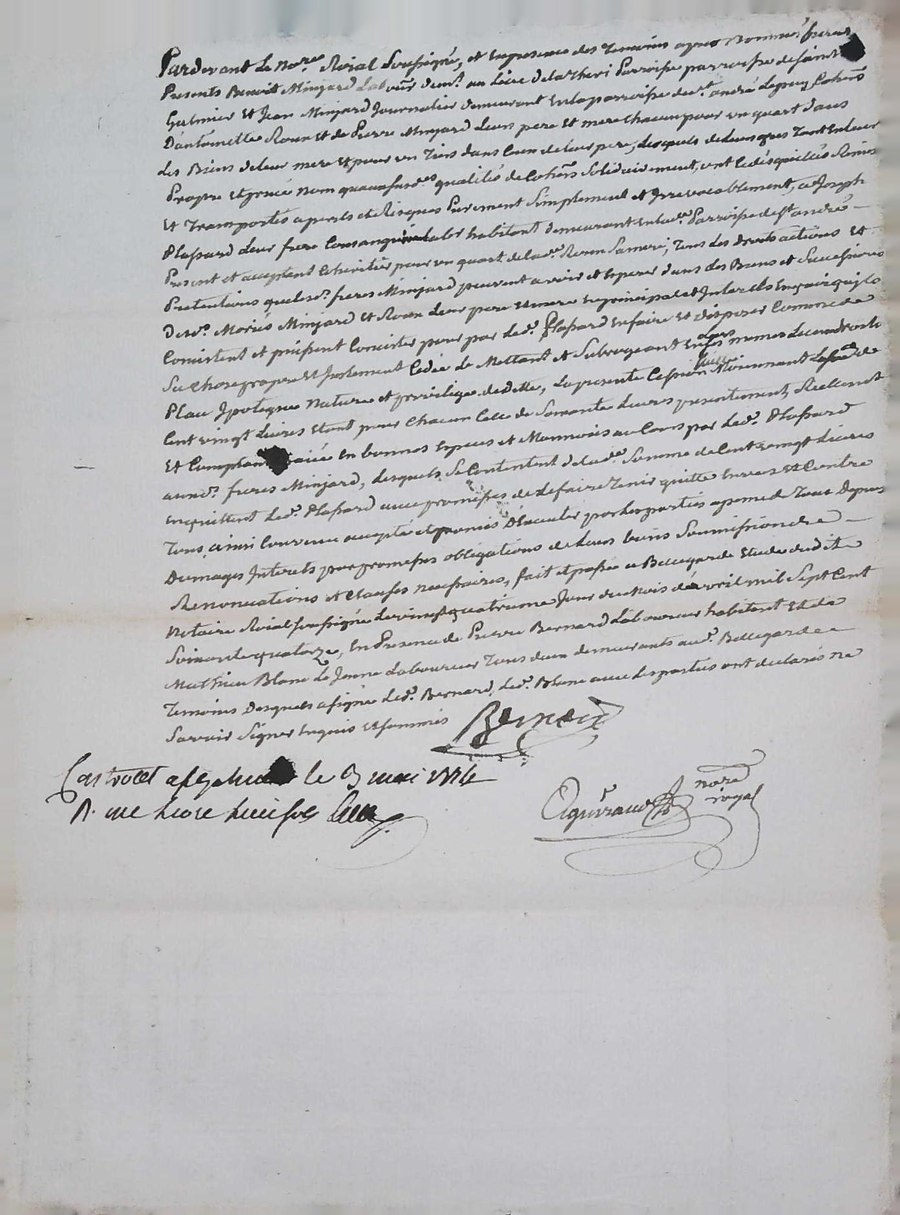 Pardevant Le No.re Roial Soussigné, et En presence des Temoins apres Nommés furent
Presents Benoit Minjard Lab.our dem.t au Lieu de Parroisse parroisse de saint
Galmier Et Jean Minjard Journalier demeurant En la parroisse de st. andré Lepuy Cohers
D'antoinette Rouu Et de Pierre Minjard Leurs pere Et mere chacun pour un quart dans
Les Biens de leur mere Et pour un Tiers dans Ceux de leur pere, desquels de leurs gres Tant En leur
Propre Et privé nom qu'aux susd.es qualités de Cohers Solidairement, ont Cedés quittés Remis
Et Transportés a perils et Risques Purement Simplement et Irrevocablement, a Joseph
Plassard Leur frere Consanguin Lab.r habitant demeurant En lad. Parroisse de st. andré
Present et acceptant Cheritier pour un quart de lad. Rouu Sa mere, Tous Les droits actions Et
Pretentions que Les d. freres Minjard peuvent avoir et Esperer dans Les Biens et Successions
Desd. Mariés Minjard Et Rouu Leur pere Et mere En principal et Interets En quoi qu'ils
Consistent et puissent Consister pour par Led. Plassard En faire Et disposer Comme de
Sa Chose propre Et Justement Cedée Le Mettant et Subrogeant En Leurs mêmes Lieu droits
Place Ypoteque Nature et privilege de dette, La presente Cession Moiennant La somme de
Cent vingt Livres Etant pour Chacun Celle de Soixante Livres presentement, Reellement
Et Comptant païée En bonnes Especes et Monnoies au Cours par Led. Plassard
auxd. freres Minjard, desquels Se Contentent de lad. Somme de Cent vingt Livres
En quittent Led. Plassard avec promesses de Le faire Tenir quitte Envers Et Contre
Tous, ainsi Convenu accepté et promis D'Executer par Les parties a peine de Tous Depens
Domages Interets par promesses obligations de Leurs biens Soumissions de
Renonciations et Clauses necessaires, fait et passé a Bellegarde Etude dudit
Notaire Roial soussigné Le vingt quatrieme Jour du Mois d'avril mil Sept Cent
Soixante quatorze, En Presence de Pierre Bernard Laboureur habitant Et de
Mathieu Blanc Le Jeune Laboureur Tous deux demeurants aud. Bellegarde
Temoins Desquels a signé Led. Bernard, Led. Blanc avec Les parties ont declarés ne
Savoir Signer Enquis Et sommés
Bernard
Controlé a st galmier le 3 mai 1774
R. une livre huit sols
no.re
royal